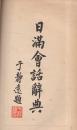 日滿會話辭典
于靜遠題